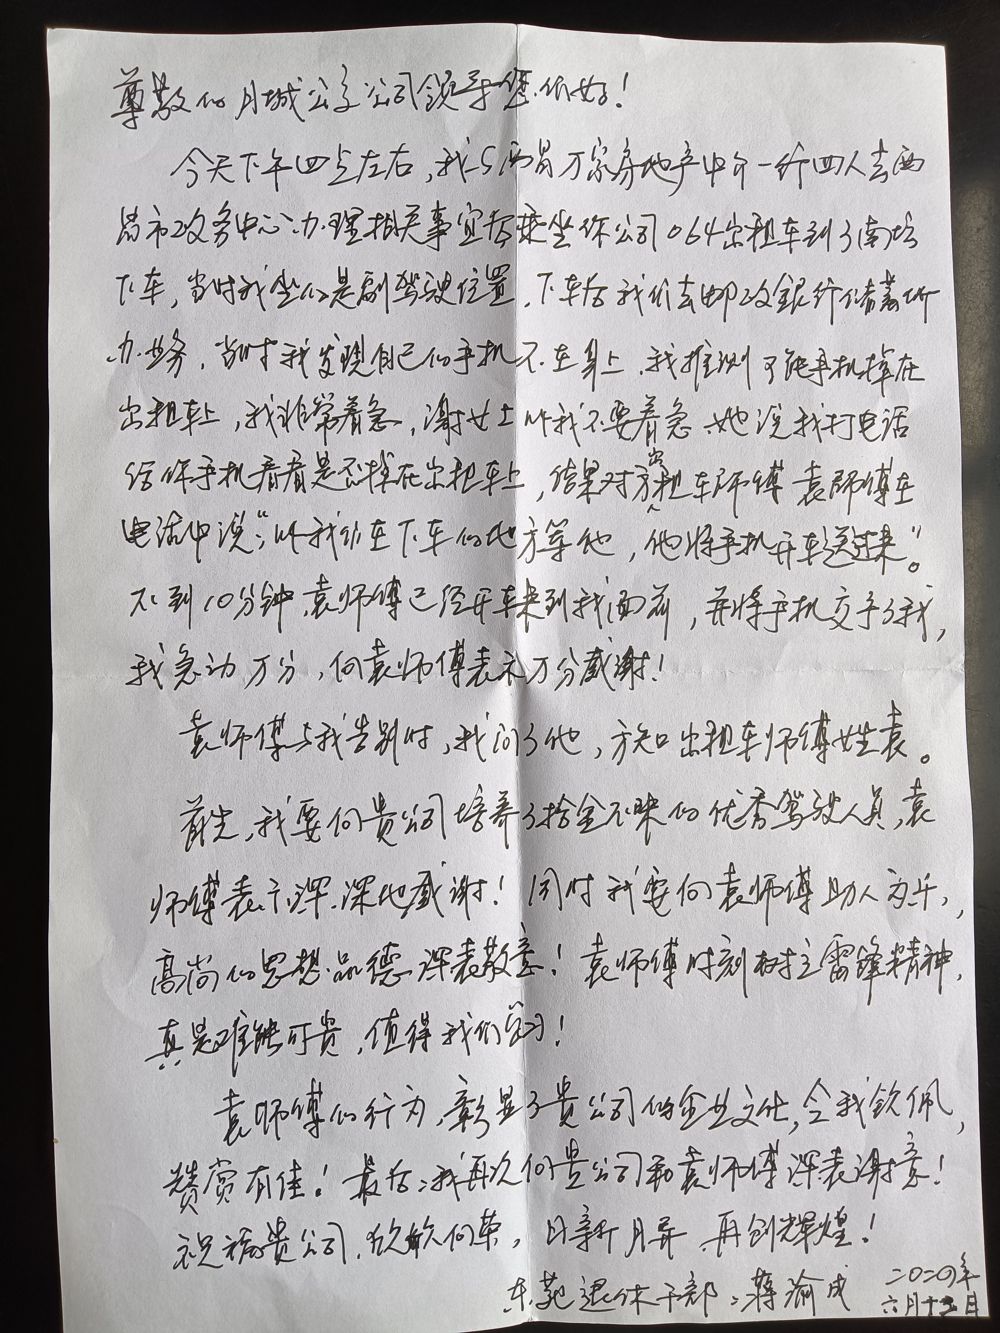 尊敬的月城公交公司领导您们好！
今天下午四点左右，我与西昌万家房地产中介一行四人去西
昌市政务中心办理相关事宜搭乘坐你公司064出租车到了南坛
下车，当时我坐的是副驾驶位置，下车后我们去邮政银行储蓄所
办业务，当时我发现自己的手机不在身上，我推测可能手机掉在
出租车上，我非常着急，谢女士叫我不要着急，她说我打电话
给你手机看看是否掉在出租车上，结果对方出租车师傅袁师傅在
电话中说："叫我们在下车的地方等他，他将手机开车送过来"。
不到10分钟，袁师傅已经开车来到我面前，并将手机交予了我，
我急动万分，向袁师傅表示万分感谢！
袁师傅与我告别时，我问了他，方知出租车师傅姓袁。
首先，我要向贵公司培养了拾金不昧的优秀驾驶人员，袁
师傅表示深深地感谢！同时我要向袁师傅助人为乐，
高尚的思想品德深表敬意！袁师傅时刻树立雷锋精神，
真是难能可贵，值得我们学习！
袁师傅的行为，彰显了贵公司的企业文化，令我钦佩，
赞赏有佳！最后，我再次向贵公司和袁师傅深表谢意！
祝福贵公司，欣欣向荣，日新月异，再创辉煌！
东苑退休干部：蒋渝成
二〇二〇年
六月十二日